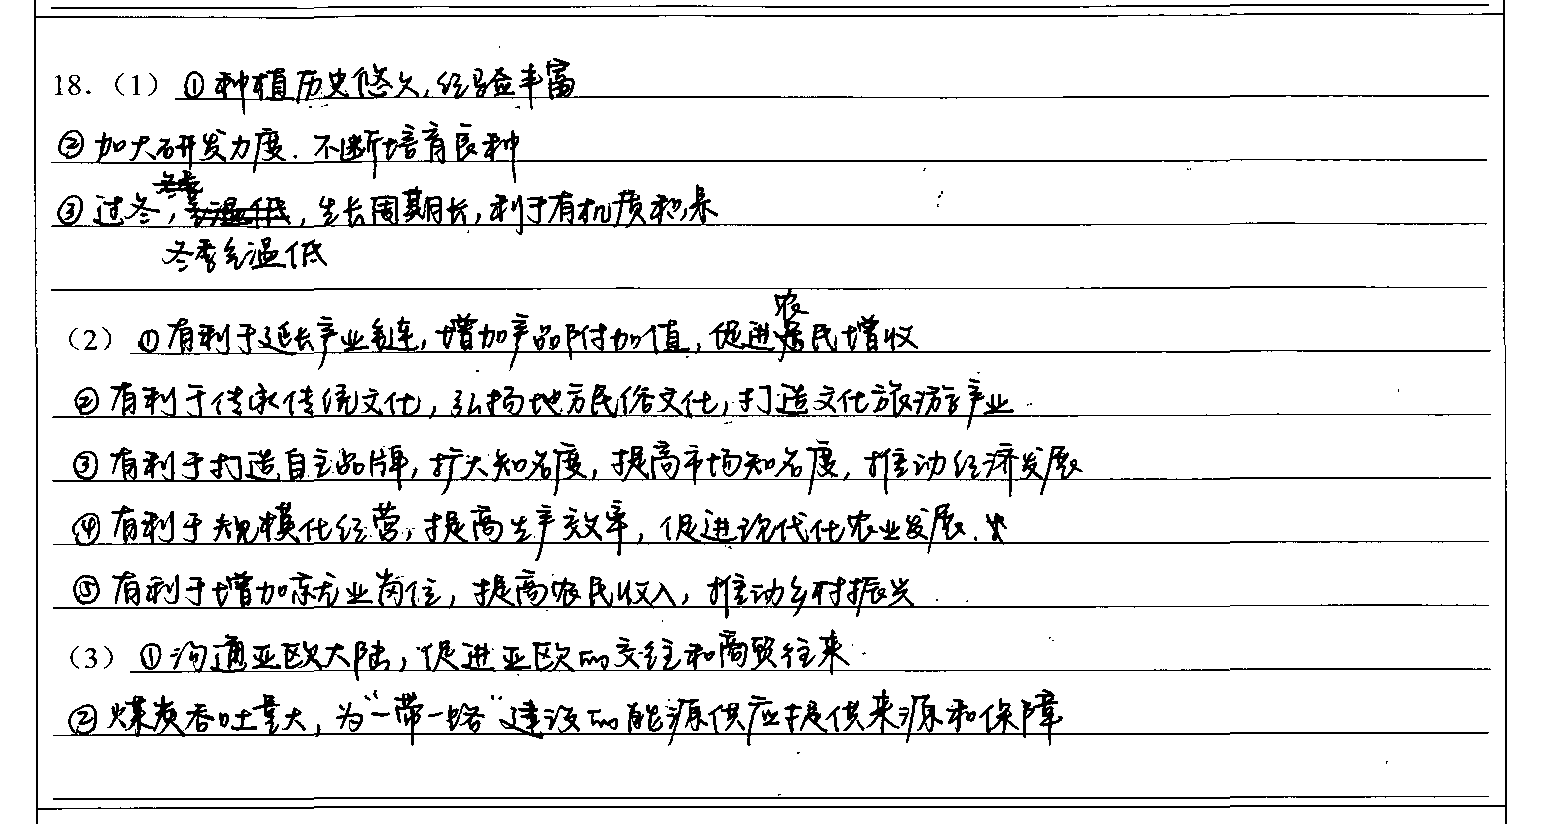 18.（1）①种植历史悠久,经验丰富
②加大研发力度.不断培育良种
③过冬,冬季气温低,生长周期长,利于有机质积累
（2）①有利于延长产业链,增加产品附加值,促进农民增收
②有利于传承传统文化,弘扬地方民俗文化,打造文化旅游产业.
③有利于打造自主品牌,扩大知名度,提高市场知名度,推动经济发展
④有利于规模化经营,提高生产效率,促进现代化农业发展.
⑤有利于增加就业岗位,提高农民收入,推动乡村振兴.
（3）①沟通亚欧大陆,促进亚欧的交往和商贸往来.
②煤炭吞吐量大,为“一带一路”建设的能源供应提供来源和保障